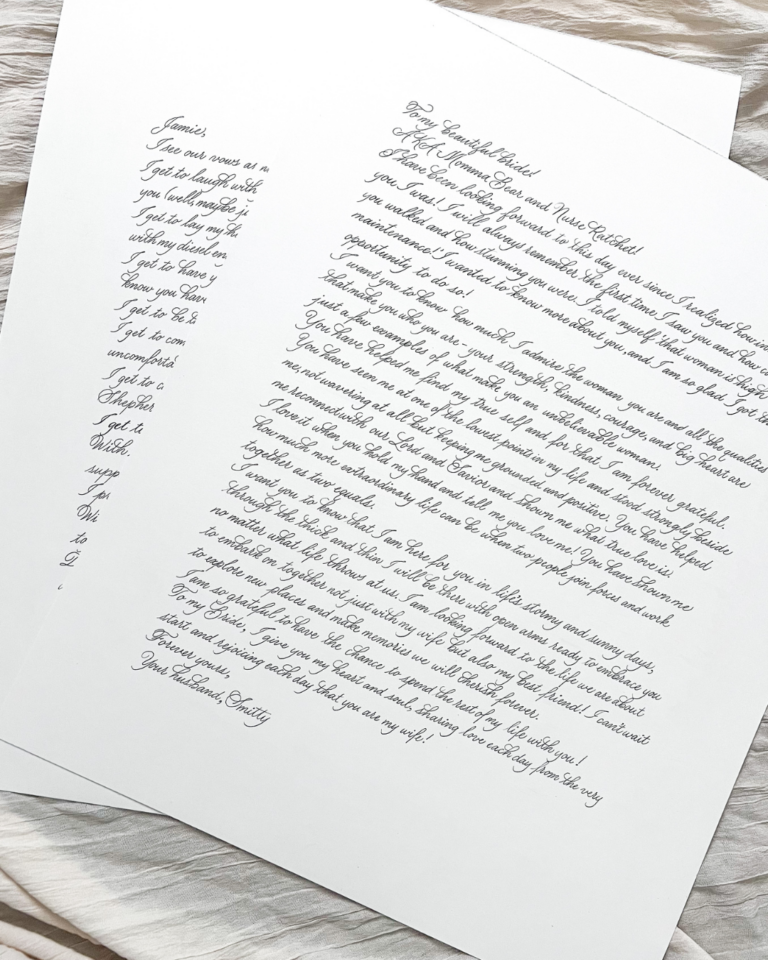 Jamie,
I see our vows as
I get to laugh with
you (well, maybe
I get to lay my
with my diesel
I get to have
know you have
I get to be
I get to
uncomforta
I get to
Shepher
I get
With.
supp
I
to
To my beautiful bride!
AKA Momma Bear and Nurse Ratchet!
I have been looking forward to this day ever since I realized how in
you I was! I will always remember the first time I saw you and how
you walked and how stunning you were. I told myself "that woman is high
maintenance!" I wanted to know more about you, and I am so glad I got the
opportunity to do so!
I want you to know how much I admire the woman you are and all the qualities
that make you who you are - your strength, kindness, courage, and big heart are
just a few examples of what make you an unbelievable woman.
You have helped me find my true self and for that I am forever grateful.
You have seen me at one of the lowest points in my life and stood strongly beside
me, not wavering at all but keeping me grounded and positive. You have helped
me reconnect with our Lord and Savior and shown me what true love is.
I love it when you hold my hand and tell me you love me! You have shown me
how much more extraordinary life can be when two people join forces and work
together as two equals.
I want you to know that I am here for you in life's stormy and sunny days,
through the thick and thin I will be there with open arms ready to embrace you
no matter what life throws at us. I am looking forward to the life we are about
to embark on together not just with my wife but also my best friend! I can't wait
to explore new places and make memories we will cherish forever.
I am so grateful to have the chance to spend the rest of my life with you!
To my Bride, I give you my heart and soul, sharing love each day from the very
start and rejoicing each day that you are my wife!
Forever yours,
Your husband, Smitty